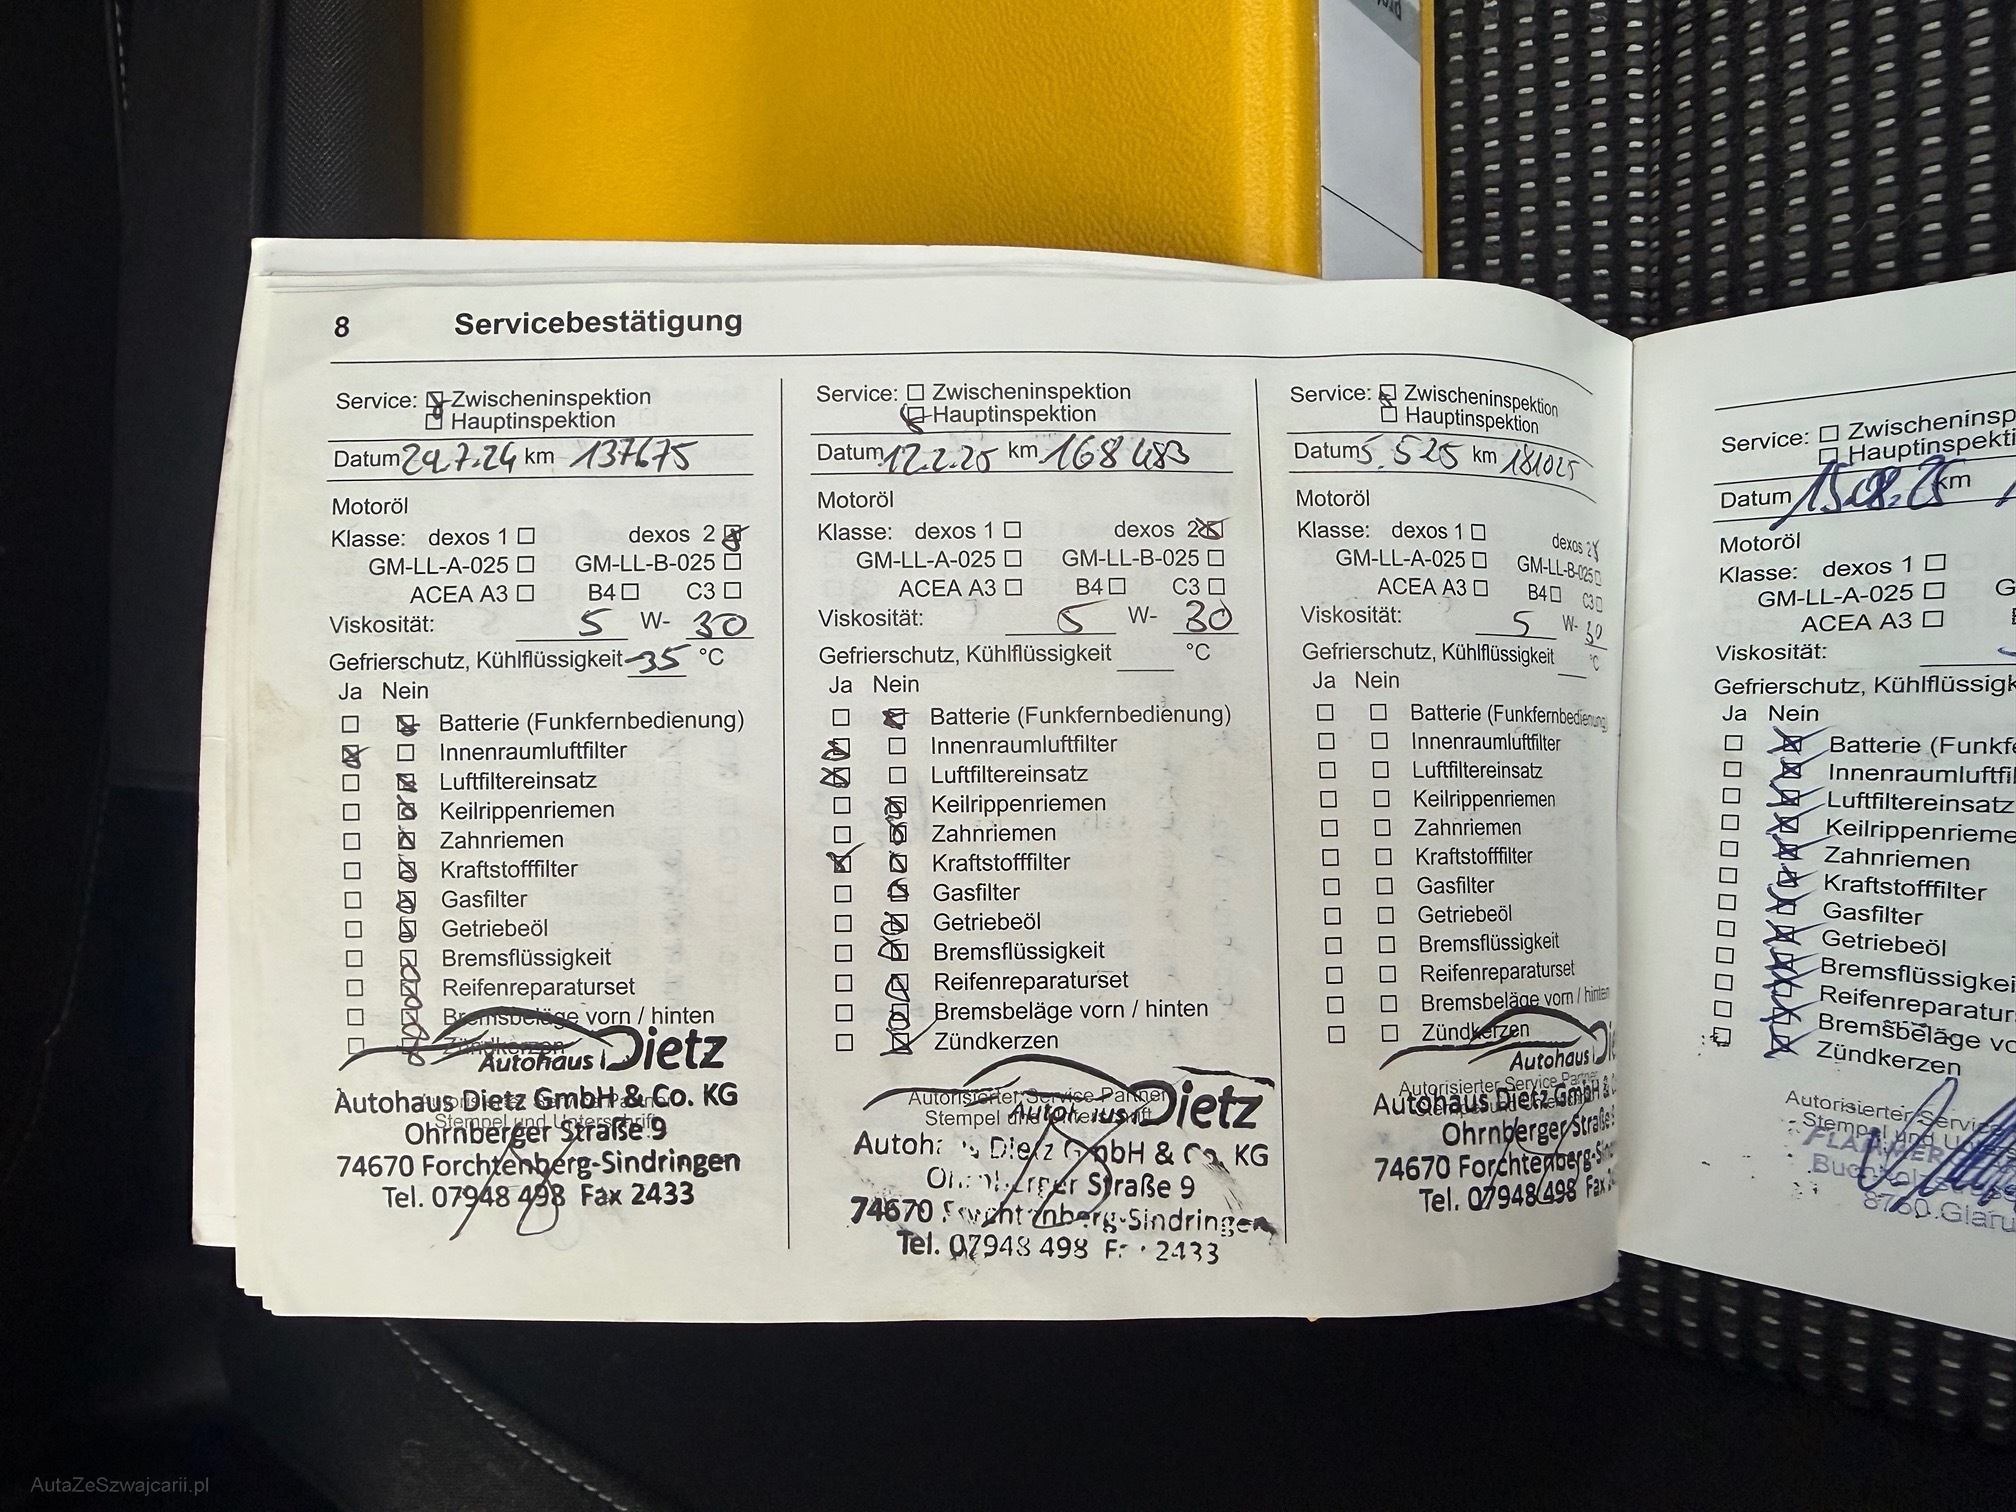 8 Servicebestätigung
Service: Zwischeninspektion
Hauptinspektion
Datum 29.7.24 km 137675
Motoröl
Klasse: dexos 1 dexos 2
GM-LL-A-025 GM-LL-B-025
ACEA A3 B4 C3
Viskosität: 5 W- 30
Gefrierschutz, Kühlflüssigkeit -35 °C
Ja Nein
Batterie (Funkfernbedienung)
Innenraumluftfilter
Luftfiltereinsatz
Keilrippenriemen
Zahnriemen
Kraftstofffilter
Gasfilter
Getriebeöl
Bremsflüssigkeit
Reifenreparaturset
Bremsbeläge vorn / hinten
Zündkerzen
Autohaus Dietz
Autohaus Dietz GmbH & Co. KG
Stempel und Unterschrift
Ohrnberger Straße 9
74670 Forchtenberg-Sindringen
Tel. 07948 498 Fax 2433
Service: Zwischeninspektion
Hauptinspektion
Datum 12.2.25 km 168483
Motoröl
Klasse: dexos 1 dexos 2
GM-LL-A-025 GM-LL-B-025
ACEA A3 B4 C3
Viskosität: 5 W- 30
Gefrierschutz, Kühlflüssigkeit °C
Ja Nein
Batterie (Funkfernbedienung)
Innenraumluftfilter
Luftfiltereinsatz
Keilrippenriemen
Zahnriemen
Kraftstofffilter
Gasfilter
Getriebeöl
Bremsflüssigkeit
Reifenreparaturset
Bremsbeläge vorn / hinten
Zündkerzen
Autorisierter Service Partner
Stempel und Unterschrift
Autohaus Dietz
Autohaus Dietz GmbH & Co. KG
Ohrnberger Straße 9
74670 Forchtenberg-Sindringen
Tel. 07948 498 Fax 2433
Service: Zwischeninspektion
Hauptinspektion
Datum 5.5.25 km 181025
Motoröl
Klasse: dexos 1 dexos 2
GM-LL-A-025 GM-LL-B-025
ACEA A3 B4 C3
Viskosität: 5 W- 30
Gefrierschutz, Kühlflüssigkeit °C
Ja Nein
Batterie (Funkfernbedienung)
Innenraumluftfilter
Luftfiltereinsatz
Keilrippenriemen
Zahnriemen
Kraftstofffilter
Gasfilter
Getriebeöl
Bremsflüssigkeit
Reifenreparaturset
Bremsbeläge vorn / hinten
Zündkerzen
Autohaus
Autorisierter Service Partner
Autohaus Dietz GmbH &
Ohrnberger Straße
74670 Forchtenberg-
Tel. 07948 498 Fax
Service: Zwischeninsp
Hauptinspekti
Datum 15.08.25 km
Motoröl
Klasse: dexos 1
GM-LL-A-025
ACEA A3
Viskosität:
Gefrierschutz, Kühlflüssigk
Ja Nein
Batterie (Funkf
Innenraumluftfil
Luftfiltereinsatz
Keilrippenrieme
Zahnriemen
Kraftstofffilter
Gasfilter
Getriebeöl
Bremsflüssigkei
Reifenreparatur
Bremsbeläge vo
Zündkerzen
Autorisierter Servic
Stempel und U
8750 Glaru
AutaZeSzwajcarii.pl